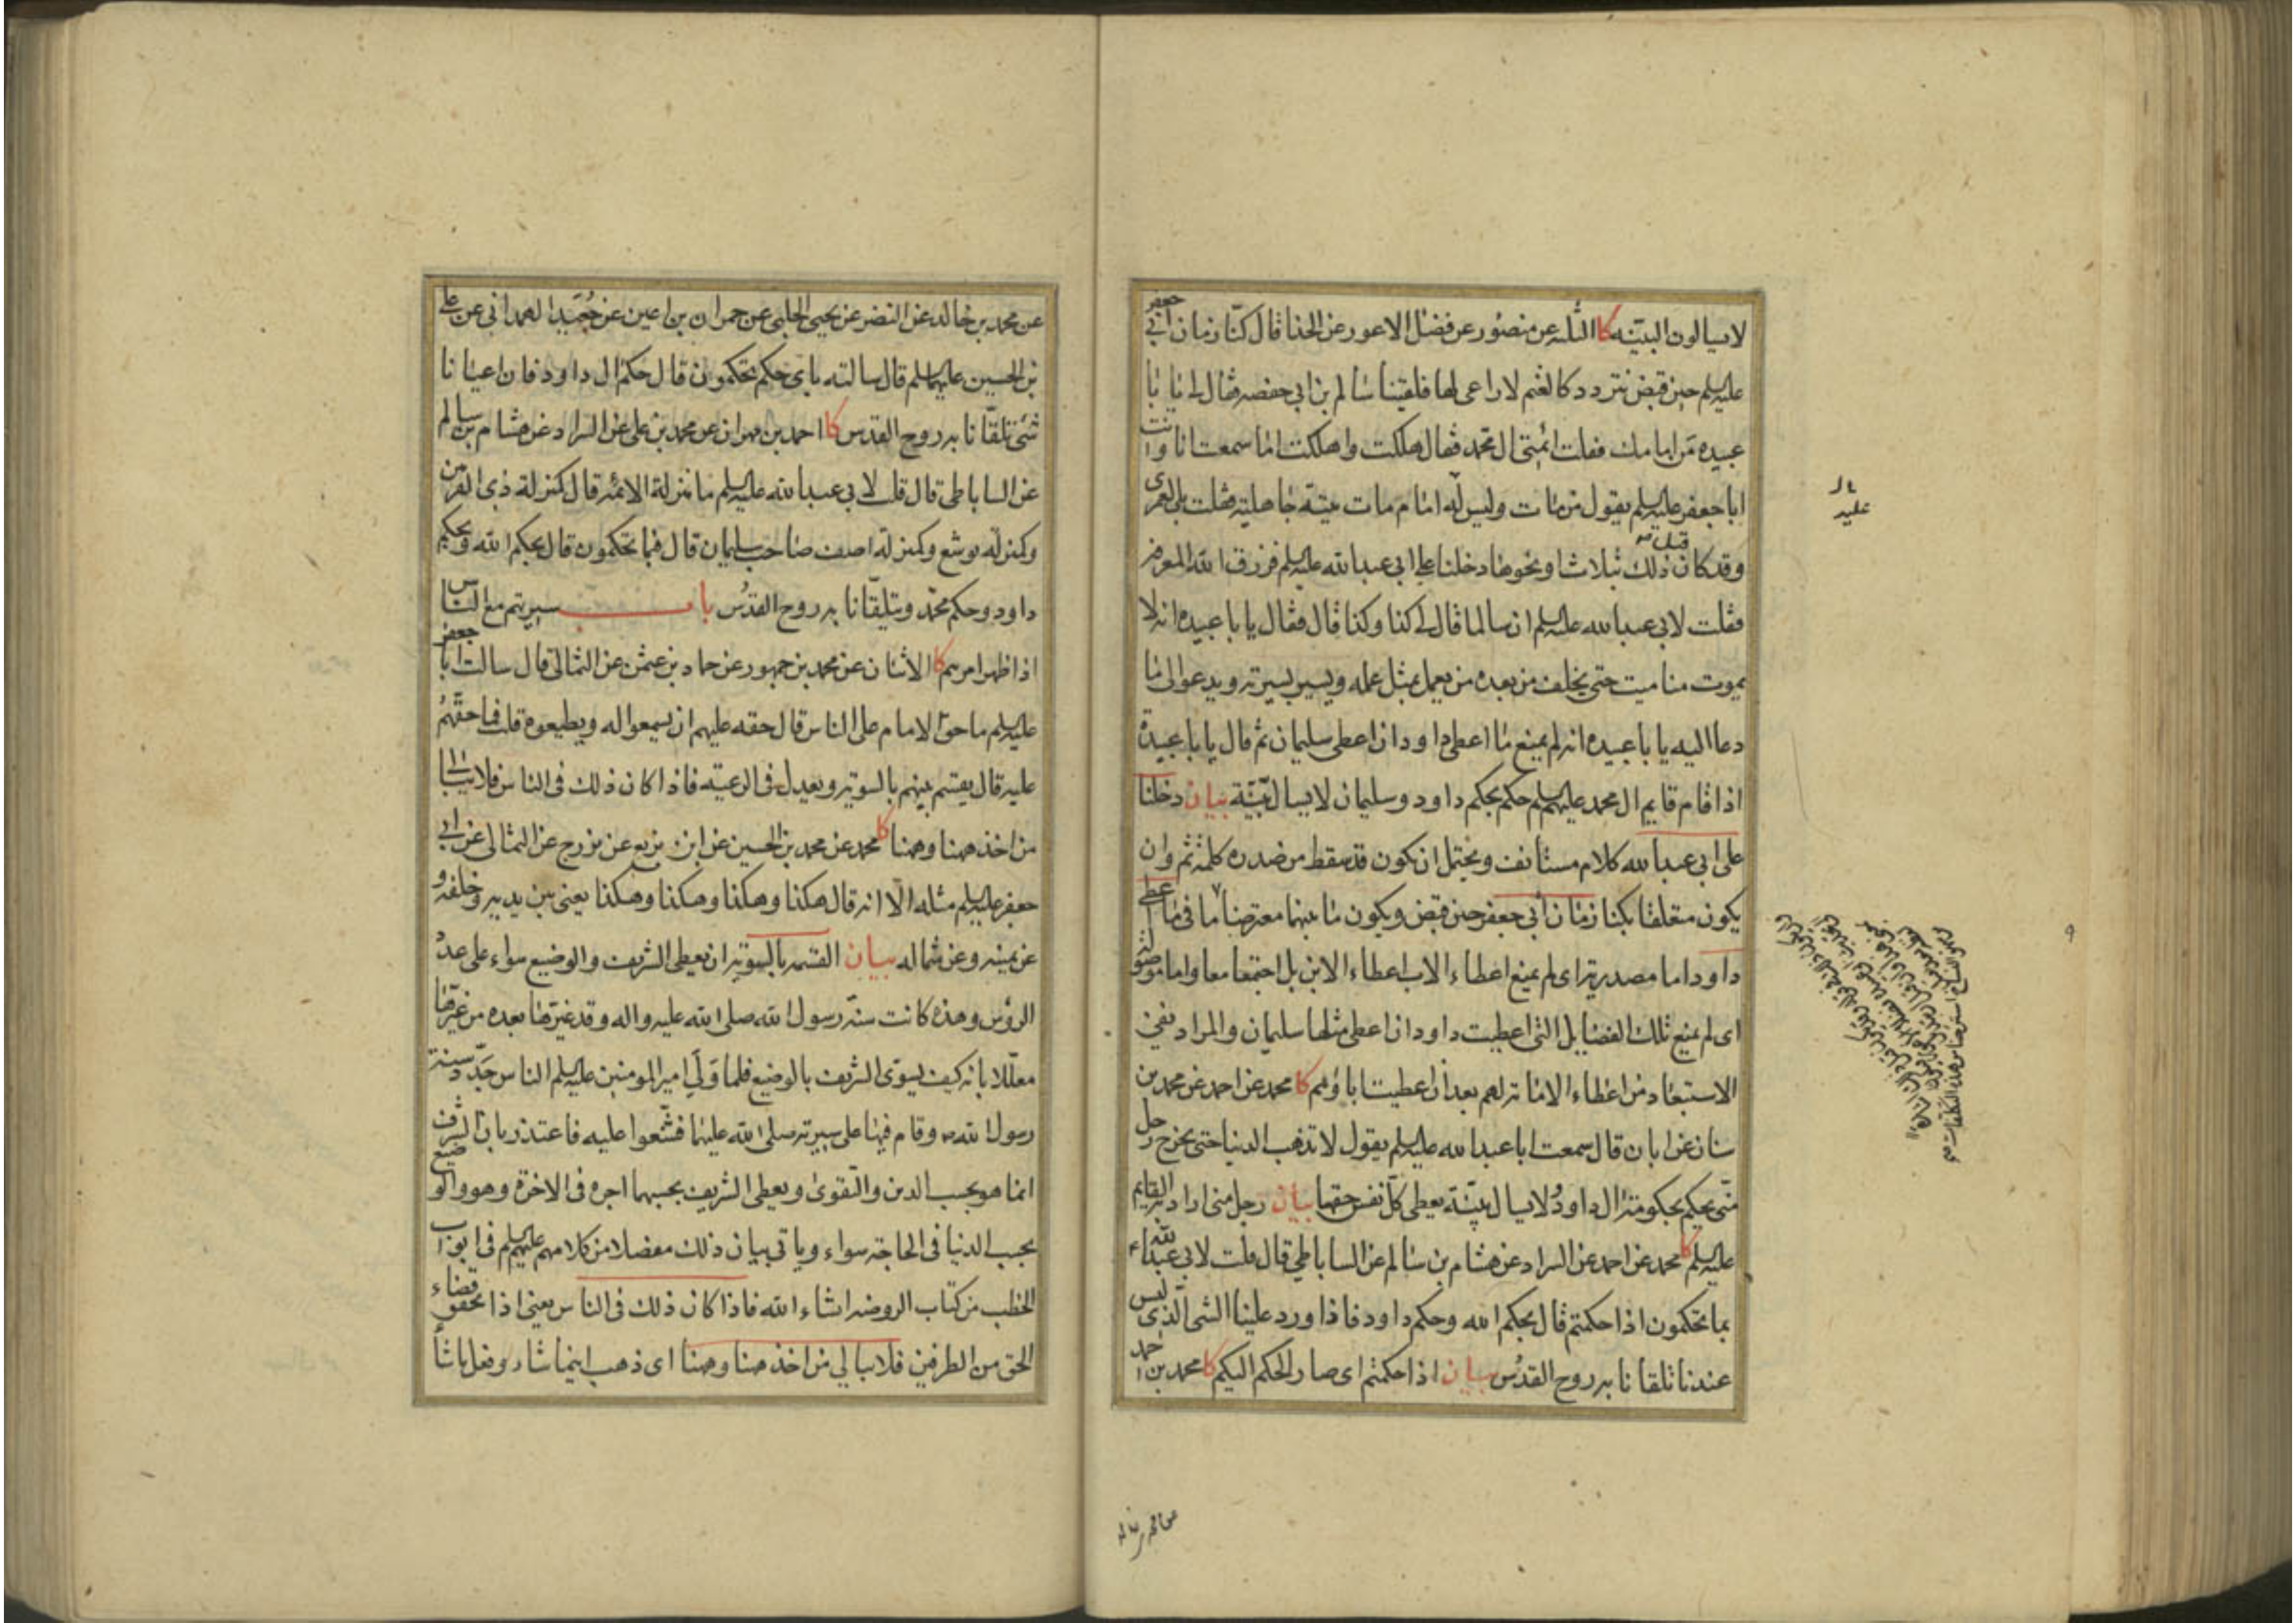 لا يسالون البينه كا الثلثه عن منصور عن فضل الاعور عن الحذا قال كنّا زمان ابي جعفر
عليه السلم حين قبض نتردد كالغنم لا راعي لها فلقينا سالم بن ابي حفصه فقال لي يا با
عبيده من امامك فقلت ائمتي ال محمد فقال هلكت واهلكت اما سمعت انا وانت
ابا جعفر عليه السلم يقول من مات وليس له امام مات ميتة جاهلية فقلت بلى لعمري
وقد كان قبل ذلك بثلاث او نحوها دخلنا على ابي عبد الله عليه السلم فرزق الله المعرفه
فقلت لابي عبد الله عليه السلم ان سالما قال لي كذا وكذا قال فقال يا با عبيده انه لا
يموت منا ميت حتى يخلف من بعده من يعمل بمثل عمله ويسير بسيرته ويدعو الى ما
دعا اليه يا با عبيده انه لم يمنع ما اعطي داود ان اعطي سليمان ثم قال يا با عبيدة
اذا قام قايم ال محمد عليهم السلم حكم بحكم داود وسليمان لا يسال بيّنة بيان دخلنا
على ابي عبد الله كلام مستانف ويحتمل ان يكون قد سقط من صدره كلمة ثم وان
يكون متعلقا بكنا زمان ابي جعفر حين قبض ويكون ما بينهما معترضا ما في ما اعطي
داود اما مصدرية اي لم يمنع اعطاء الاب اعطاء الابن بل اجتمعا معا واما موصوله
اي لم يمنع تلك الفضايل التي اعطيت داود ان اعطي مثلها سليمان والمراد نفي
الاستبعاد من اعطاء الامامة لهم بعد ان اعطيت اباؤهم كا محمد عن احمد عن محمد بن
سنان عن ابان قال سمعت ابا عبد الله عليه السلم يقول لا تذهب الدنيا حتى يخرج رجل
منّي يحكم بحكومة ال داود ولا يسال بيّنة يعطي كل نفس حقها بيان رجل مني اراد به القايم
عليه السلم كا محمد عن احمد عن السراد عن هشام بن سالم عن الساباطي قال قلت لابي عبد الله ع
بما تحكمون اذا حكمتم قال بحكم الله وحكم داود فاذا ورد علينا الشي الذي ليس
عندنا تلقانا به روح القدُس بيان اذا حكمتم اي صار الحكم اليكم كا محمد بن احمد
عليه
عن محمد بن خالد عن النضر عن يحيى الحلبي عن حمران بن اعين عن جُعَيد الهمداني عن علي
بن الحسين عليهما السلم قال سالته باي حكم تحكمون قال حكم ال داود فان اعيانا
شئ تلقّانا به روح القدس كا احمد بن مهران عن محمد بن علي عن السراد عن هشام بن سالم
عن الساباطي قال قلت لابي عبد الله عليه السلم ما منزلة الائمه قال كمنزلة ذي القرنين
وكمنزلة يوشع وكمنزلة اصف صاحب سليمان قال فبما تحكمون قال بحكم الله وبحكم
داود وحكم محمّد ويتلقّانا به روح القدُس باب سيرتهم مع الناس
اذا ظهر امرهم كا الاثنان عن محمد بن جمهور عن حماد بن عثمن عن الثمالي قال سالت ابا جعفر
عليه السلم ما حق الامام على الناس قال حقه عليهم ان يسمعوا له ويطيعوه قلت فما حقّهُم
عليه قال يقسم بينهم بالسويه ويعدل في الرعيّه فاذا كان ذلك في الناس فلا يبالي
من اخذ ههنا وههنا كا محمد عن محمد بن الحسين عن ابن بزيع عن بزرج عن الثمالي عن ابي
جعفر عليه السلم مثله الّا انه قال هكذا وهكذا وهكذا وهكذا يعني بين يديه وخلفه و
عن يمينه وعن شماله بيان القسمه بالسويه ان يعطى الشريف والوضيع سواء على عدد
الرؤس وهذه كانت سنّة رسول الله صلى الله عليه واله وقد غيّرها بعده من غيّرها
معلّلا بانه كيف يسوّى الشريف بالوضيع فلما وَلِيَ امير المومنين عليه السلم الناس جدّد سنة
رسول الله ص وقام فيها على سيرته صلى الله عليهما فشنّعوا عليه فاعتذر بان الشرف
انما هو بحسب الدين والتقوى ويعطى الشريف بحسبهما اجره في الاخرة وهو والوضيع
بحسب الدنيا في الحاجة سواء وياتي بيان ذلك مفصلا من كلامهم عليهم السلم في ابواب
الخطب من كتاب الروضه انشاء الله فاذا كان ذلك في الناس يعني اذا تحقق قضاء
الحق من الطرفين فلا يبالي من اخذ ههنا وههنا اي ذهب اينما شاء وفعل ما شا